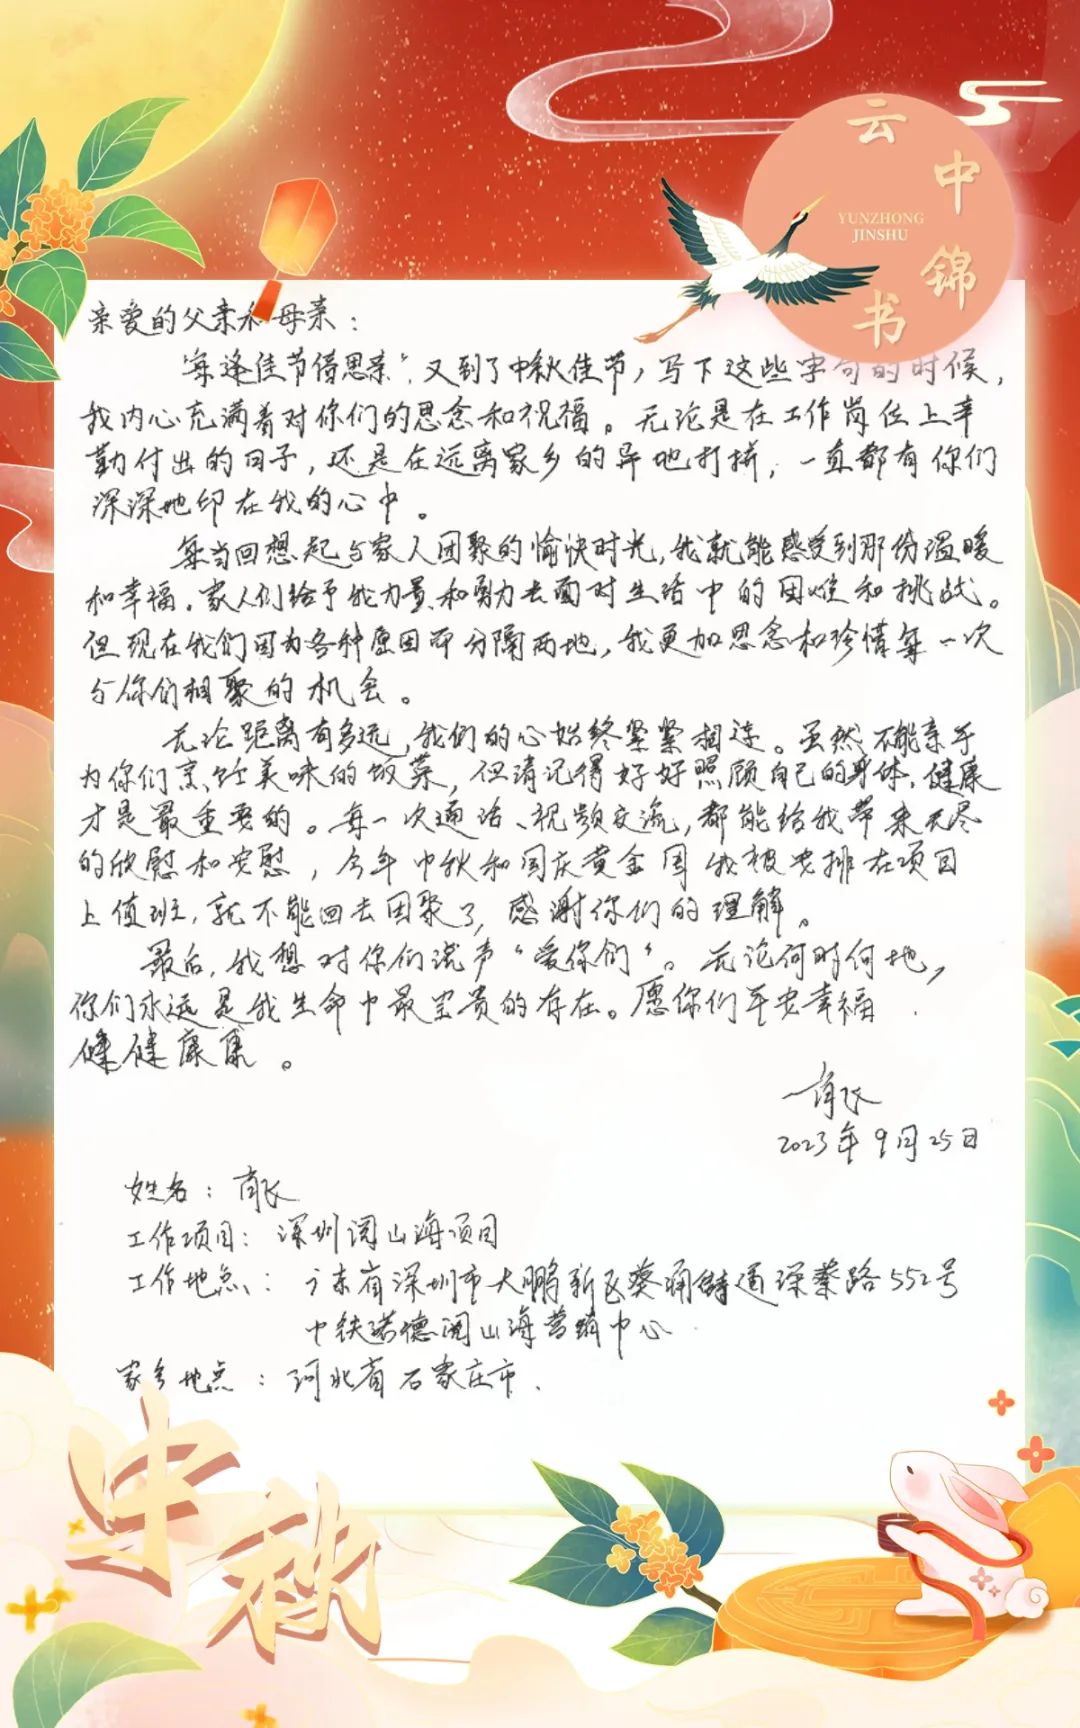 云中锦书
YUNZHONG
JINSHU
亲爱的父亲和母亲：
"每逢佳节倍思亲"，又到了中秋佳节，写下这些字句的时候，
我内心充满着对你们的思念和祝福。无论是在工作岗位上辛
勤付出的日子，还是在远离家乡的异地打拼，一直都有你们
深深地印在我的心中。
每当回想起与家人团聚的愉快时光，我就能感受到那份温暖
和幸福。家人们给予我力量和勇力去面对生活中的困难和挑战。
但现在我们因为各种原因而分隔两地，我更加思念和珍惜每一次
与你们相聚的机会。
无论距离有多远，我们的心始终紧紧相连。虽然不能亲手
为你们烹饪美味的饭菜，但请记得好好照顾自己的身体，健康
才是最重要的。每一次通话、视频交流，都能给我带来无尽
的欣慰和安慰，今年中秋和国庆黄金周我被安排在项目
上值班，就不能回去团聚了，感谢你们的理解。
最后，我想对你们说声"爱你们"。无论何时何地，
你们永远是我生命中最宝贵的存在。愿你们平安幸福，
健健康康。
2023年9月25日
姓名：
工作项目：深圳阅山海项目
工作地点：广东省深圳市大鹏新区葵涌街道深葵路552号
中铁诺德阅山海营销中心
家乡地点：河北省石家庄市.
中秋